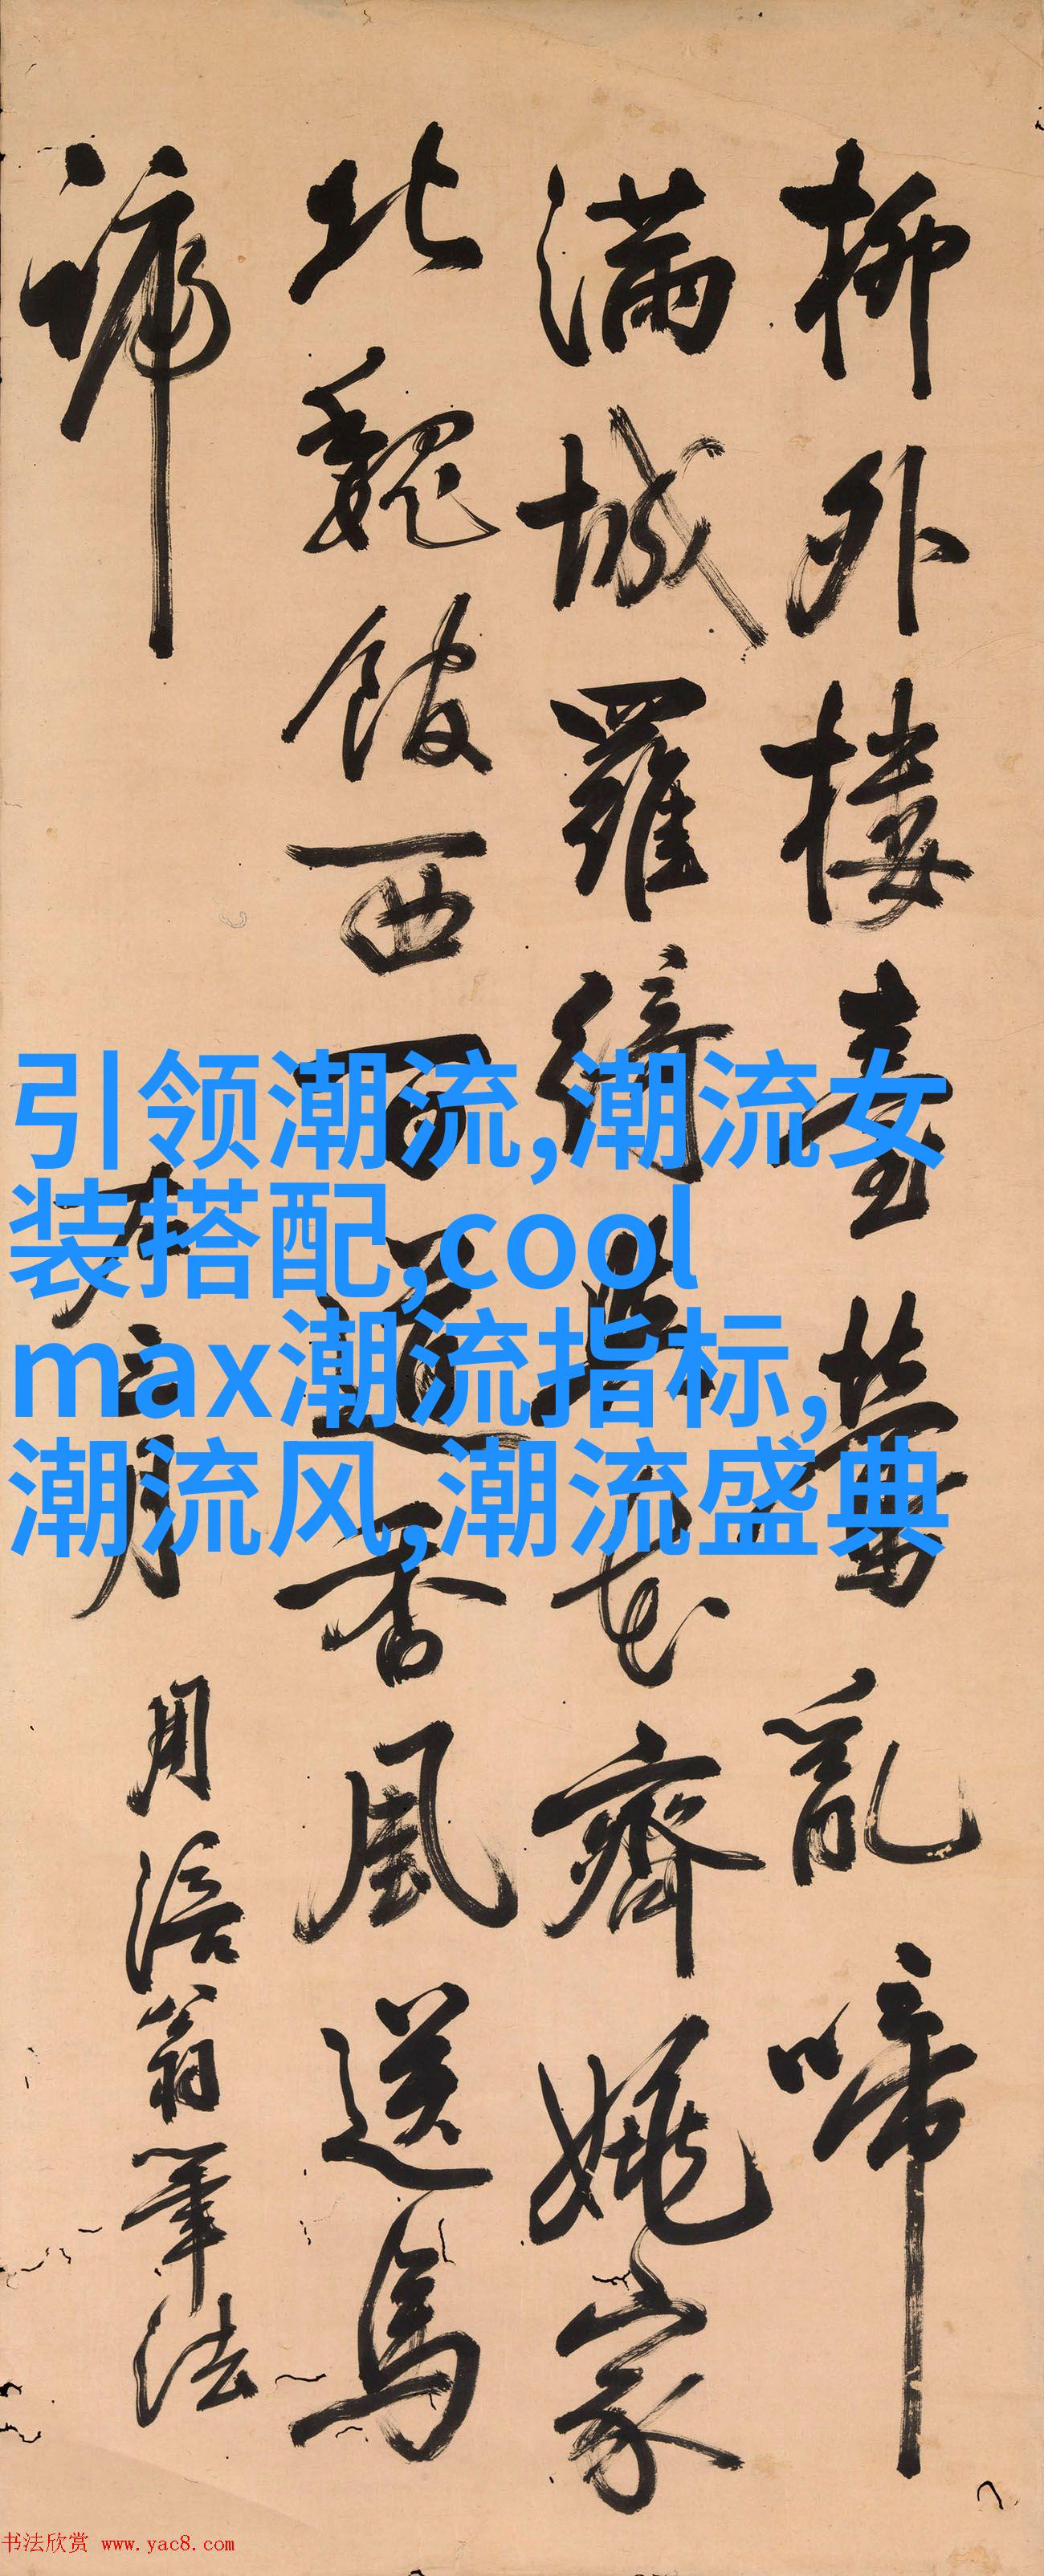 柳外樓臺鶯亂啼
滿城羅綺花齊姚家
北魏西百道香風送馬
蹄
二月
用涪翁筆法
引领潮流,潮流女
装搭配,cool
max潮流指标,
潮流风,潮流盛典
书法欣赏 www.yac8.com